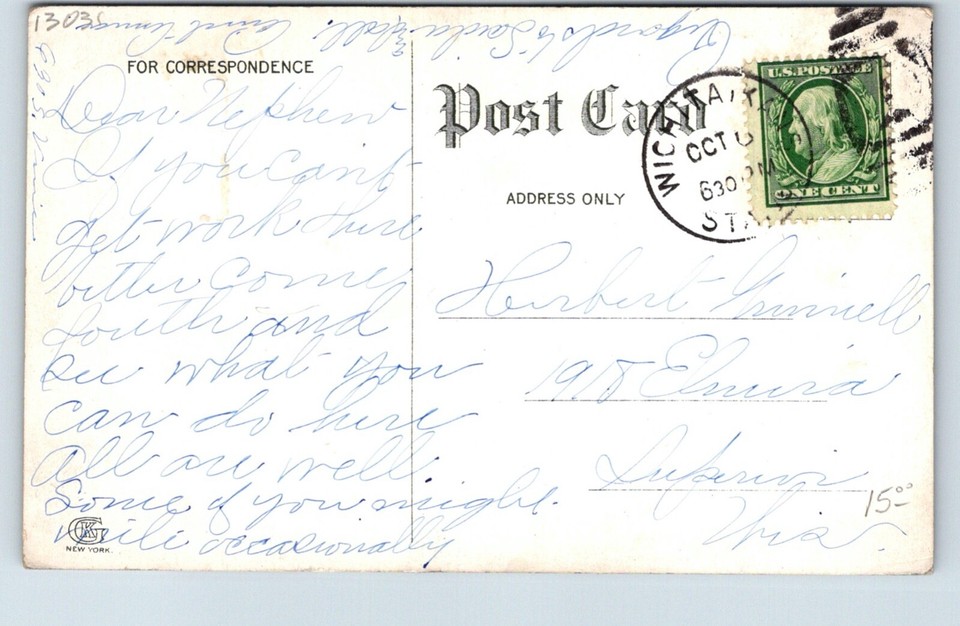 13035
FOR CORRESPONDENCE
Dear Nephew
If you cant
get work here
better come
south and
see what you
can do here
all are well
Some of you might
write occasionally
Regards to Sadie & all.
Aunt
GK
NEW YORK.
Post Card
ADDRESS ONLY
WICHITA
OCT
630 PM
STA
U.S. POSTAGE
ONE CENT
Herbert Grinnell
1918 Elmira
Superior
Wis.
15.00